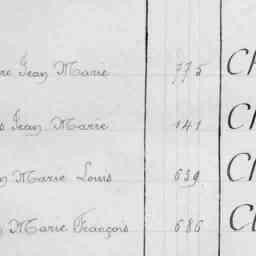 re Jean Marie 775 Ch
s Jean Marie 141 Ch
n Marie Louis 639 Ch
Marie François 686 Ch